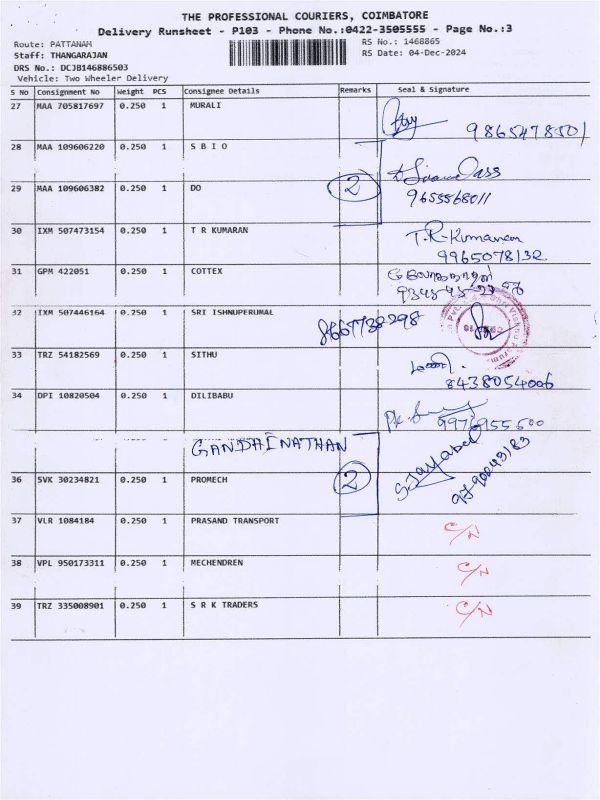 THE PROFESSIONAL COURIERS, COIMBATORE
Delivery Runsheet - P103 - Phone No.:0422-3505555 - Page No.:3
Route: PATTANAM
RS No.: 1468865
Staff: THANGARAJAN
RS Date: 04-Dec-2024
DRS No.: DCJB146886503
Vehicle: Two Wheeler Delivery
S No Consignment No Weight PCS Consignee Details Remarks Seal & Signature
27 MAA 705817697 0.250 1 MURALI
9865478501
28 MAA 109606220 0.250 1 S B I O
29 MAA 109606382 0.250 1 DO 2
9655568011
30 IXM 507473154 0.250 1 T R KUMARAN T.R-Kumaran
9965078132
31 GPM 422051 0.250 1 COTTEX
32 IXM 507446164 0.250 1 SRI ISHNUPERUMAL 8667738298
33 TRZ 54182569 0.250 1 SITHU மணி.
8438054006
34 DPI 10820504 0.250 1 DILIBABU
9976955600
GANDHINATHAN
36 SVK 30234821 0.250 1 PROMECH 2 S.Jayabal
37 VLR 1084184 0.250 1 PRASAND TRANSPORT C/N
38 VPL 950173311 0.250 1 MECHENDREN C/N
39 TRZ 335008901 0.250 1 S R K TRADERS C/N